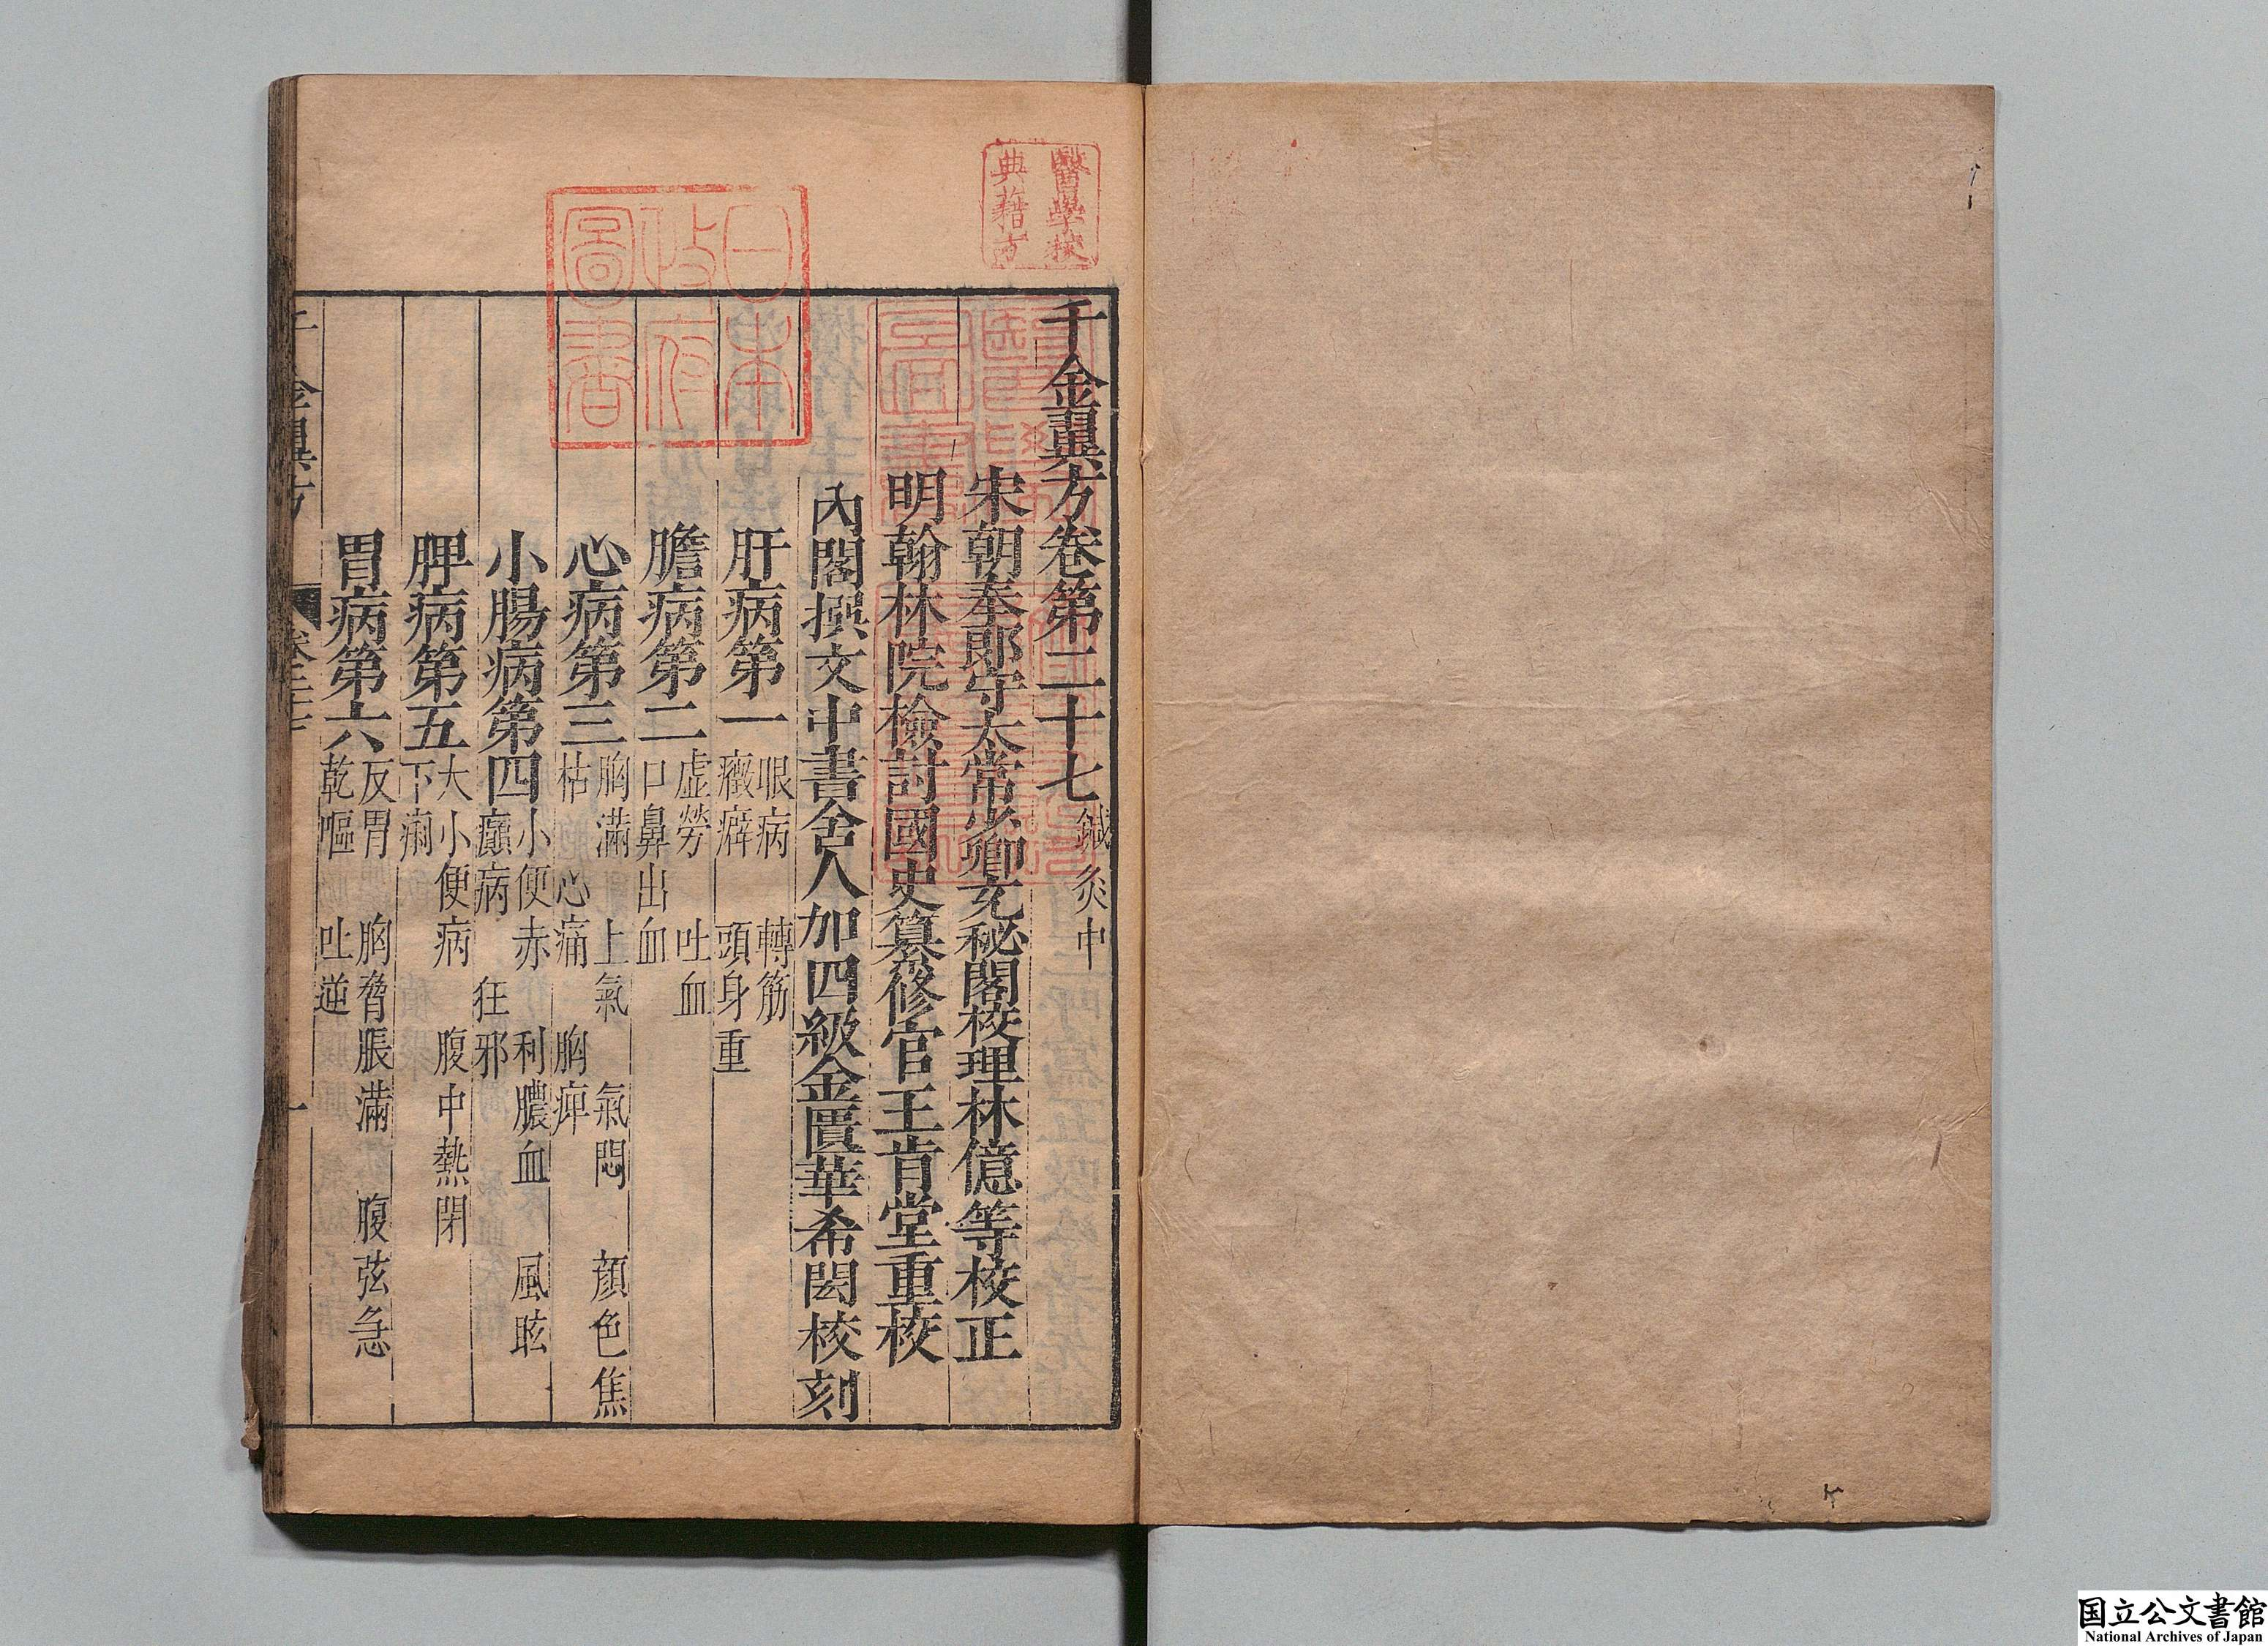 千金翼方卷第二十七 鍼灸中
宋朝奉郎守太常少卿充秘閣校理林億等校正
明翰林院檢討國史纂修官王肯堂重校
內閣撰文中書舍人加四級金匱華希閎校刻
肝病第一 眼病 轉筋
癥癖 頭身重
膽病第二 虛勞 吐血
口鼻出血
心病第三 胸滿 上氣 氣悶 顔色焦
枯 心痛 胸痺
小腸病第四 小便赤 利膿血 風眩
癲病 狂邪
脾病第五 大小便病 腹中熱閉
下痢
胃病第六 反胃 胸脅脹滿 腹弦急
乾嘔 吐逆
千金翼方 卷二十七 一
醫學校
典籍
日本
政府
圖書
国立公文書館
National Archives of Japan